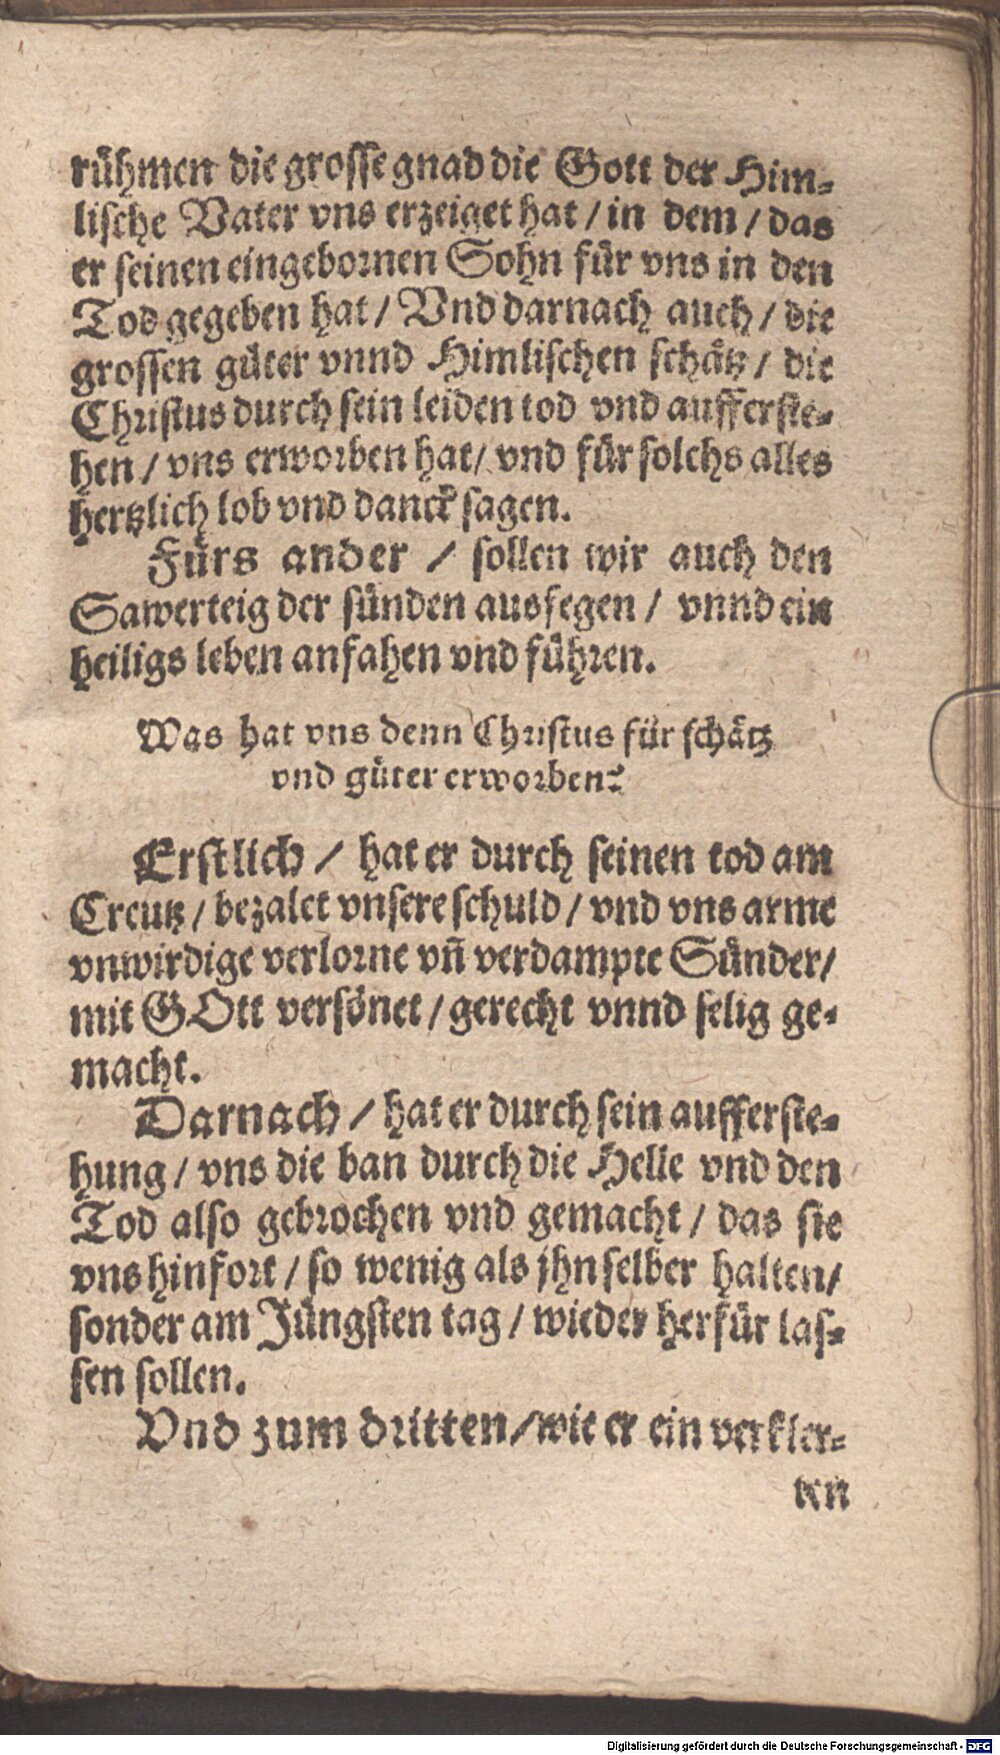 rühmen die grosse gnad die Gott der Him-
lische Vater vns erzeiget hat / in dem / das
er seinen eingebornen Sohn für vns in den
Tod gegeben hat / Vnd darnach auch / die
grossen güter vnnd Himlischen schätz / die
Christus durch sein leiden tod vnd aufferste-
hen / vns erworben hat / vnd für solchs alles
hertzlich lob vnd danck sagen.
Fürs ander / sollen wir auch den
Sawerteig der sünden ausfegen / vnnd ein
heiligs leben anfahen vnd führen.
Was hat vns denn Christus für schätz
vnd güter erworben?
Erstlich / hat er durch seinen tod am
Creutz / bezalet vnsere schuld / vnd vns arme
vnwirdige verlorne vñ verdampte Sünder /
mit GOtt versönet / gerecht vnnd selig ge-
macht.
Darnach / hat er durch sein aufferste-
hung / vns die ban durch die Helle vnd den
Tod also gebrochen vnd gemacht / das sie
vns hinfort / so wenig als jhn selber halten /
sonder am Jüngsten tag / wieder herfür las-
sen sollen.
Vnd zum dritten / wie er ein verkler-
ten
Digitalisierung gefördert durch die Deutsche Forschungsgemeinschaft - DFG